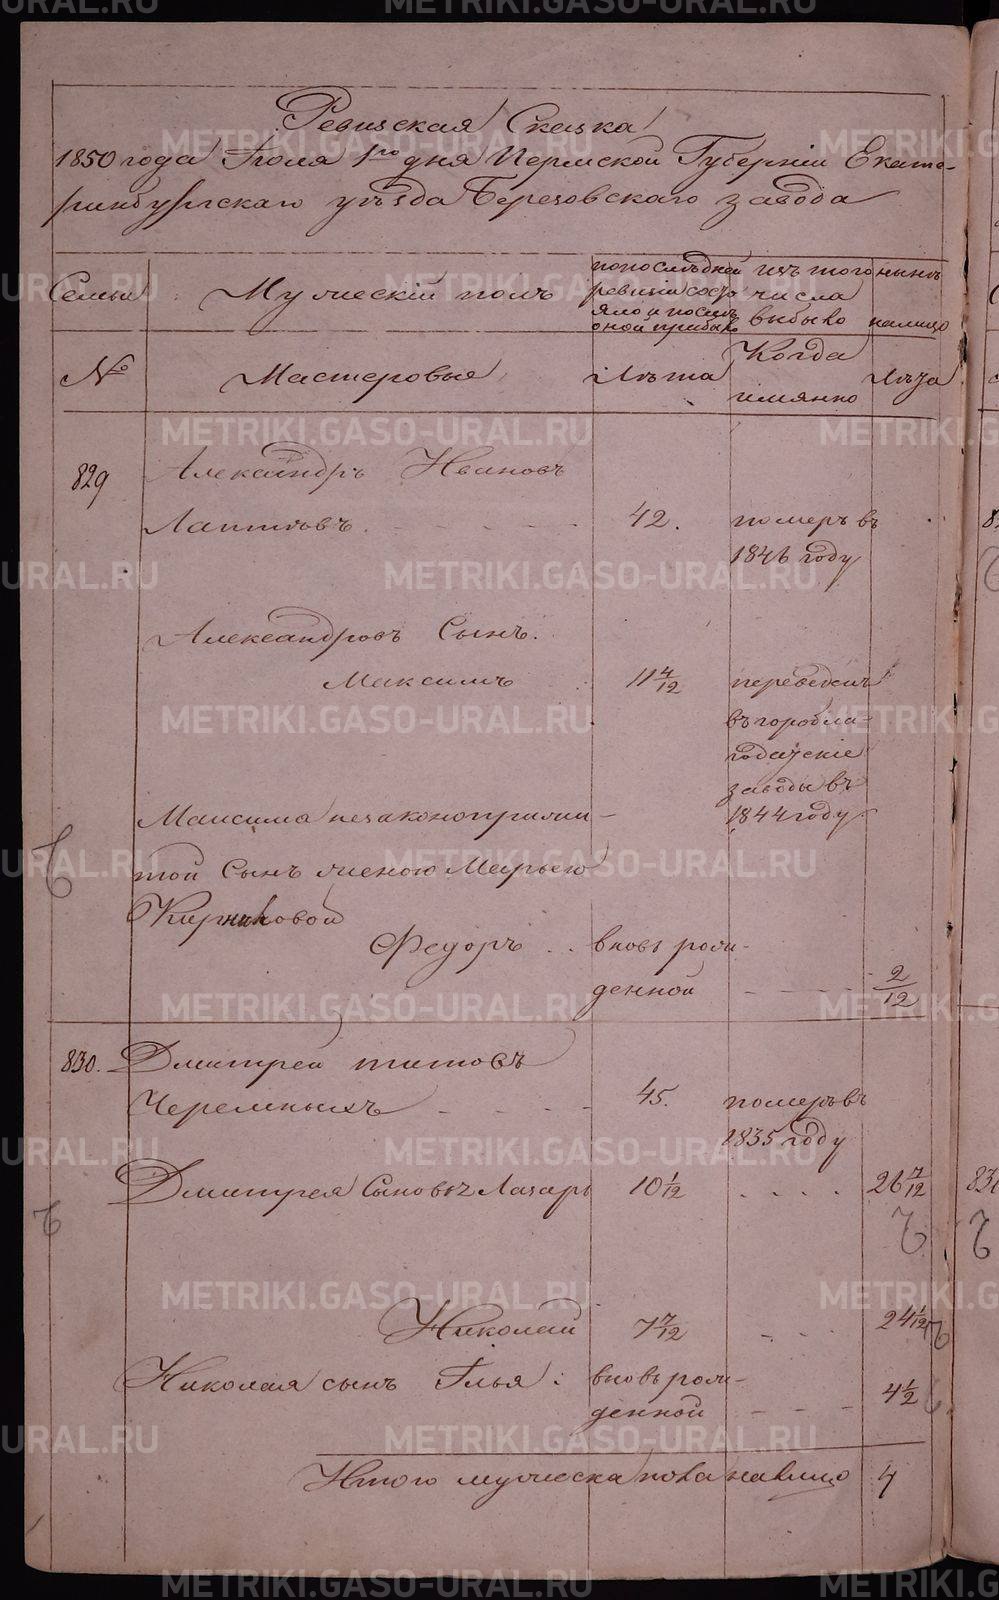 Ревизская Сказка
1850 года Июля 1го дня Пермской Губернiи Екате-
ринбургскаго уѣзда Березовскаго завода
Семьи Мужескiй полъ
попослѣдней ревизiи состояло и послѣ оной прибыло
изъ того числа выбыло
нынѣ налицо
№ Мастеровые Лѣта Когда имянно Лѣта
829 Александръ Ивановъ
Лаптевъ 42. померъ въ
1846 году
Александровъ Сынъ.
Максимъ 11 4/12 переведенъ
въ горобла-
годацкiе
заводы въ
1844 году
Максима незаконоприжи-
той Сынъ женою Марьею
Федоръ вновь рож-
денной 2/12
830. Дмитрей титовъ
Черемныхъ 45. померъ въ
1835 году
Дмитрея Сыновъя Лазарь 10 1/12 26 7/12
Николай 7 7/12 24 1/12
Николая сынъ Илья: вновь рож-
денной 4 1/2
Итого мужеска пола налицо 4
METRIKI.GASO-URAL.RU